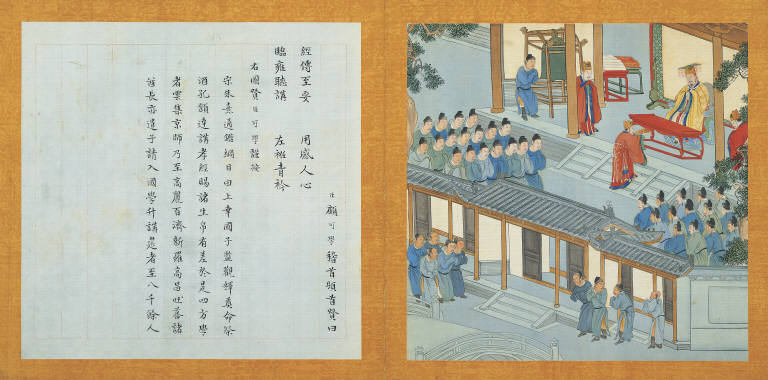 臣顧可學稽首頓首贊曰
經傳至要 用感人心
臨雍聽講 左袵青衿
右圖贊臣可學謹按
宋朱熹通鑑綱目曰上幸國子監觀釋奠命祭
酒孔穎達講孝經賜諸生帛有差於是四方學
者雲集京師乃至高麗百濟新羅高昌吐蕃諸
酋長亦遣子請入國學升講筵者至八千餘人